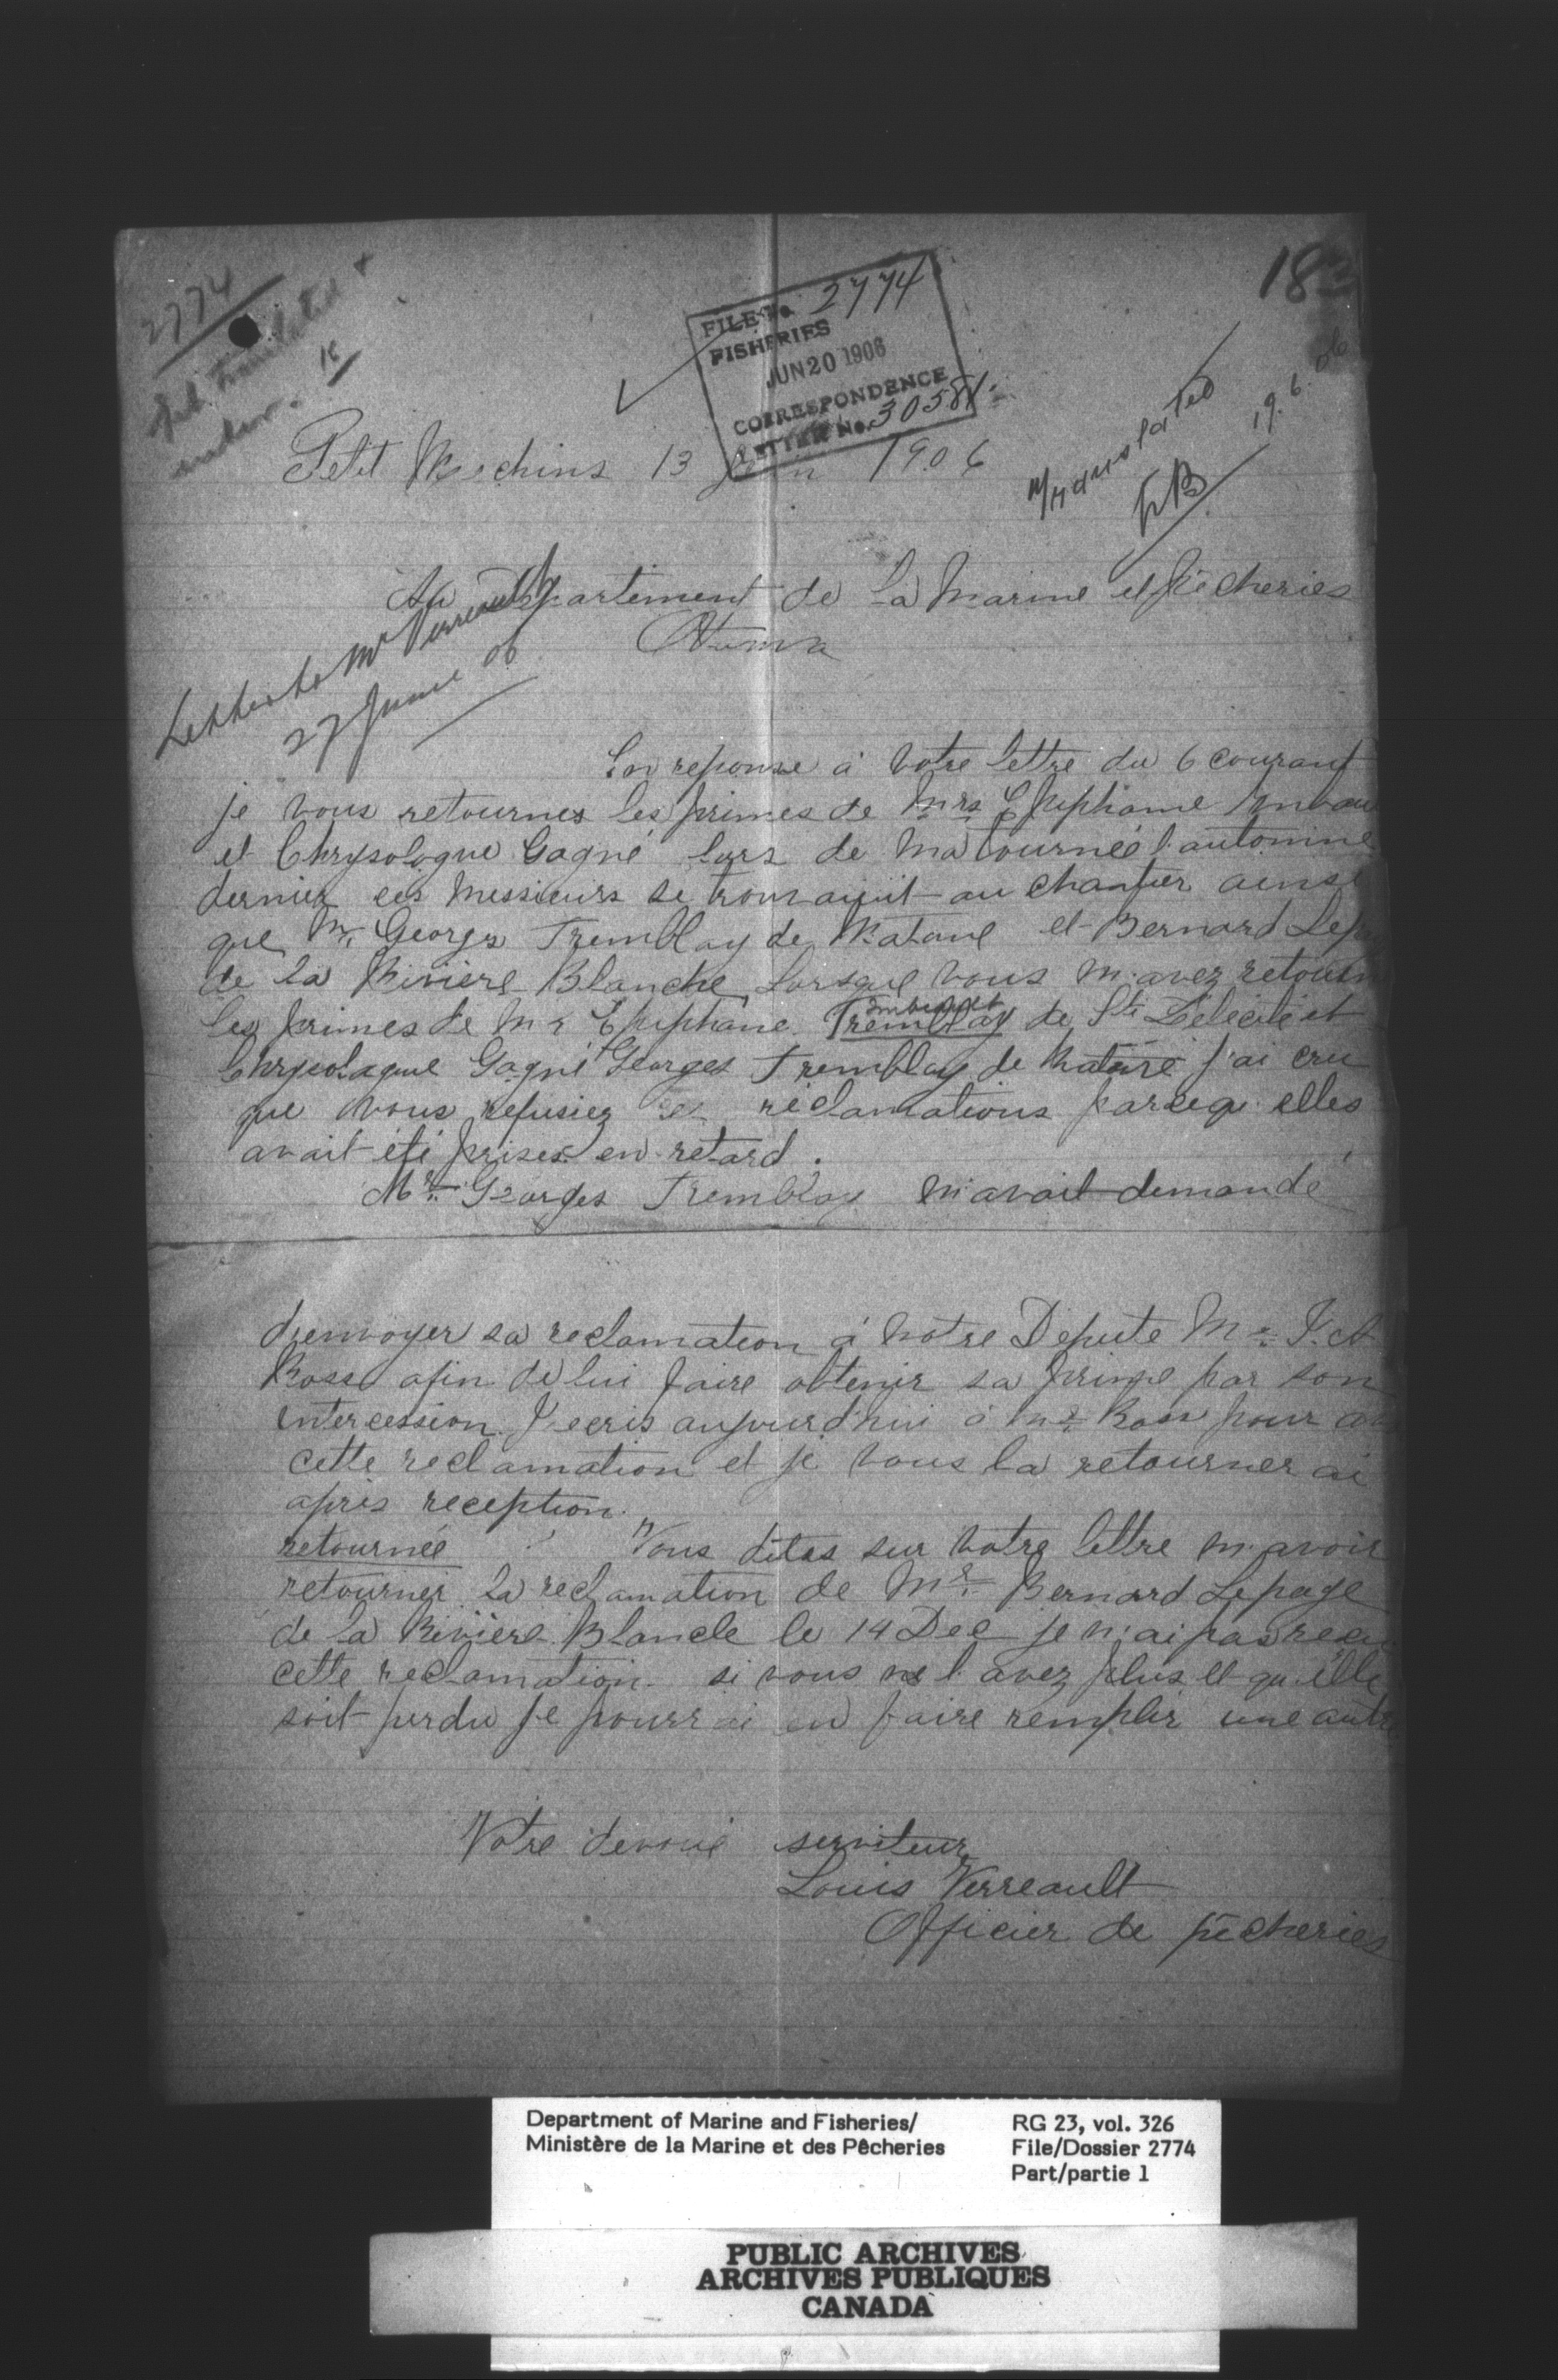 2774
18
FILE No. 2774
FISHERIES
JUN 20 1906
CORRESPONDENCE
LETTER No. 3058
translated
19.6.06
Petit Mechins 13 Juin 1906
Au Departement de La Marine et Pêcheries
Letter to Mr Verreault
27 June 06
En reponse à votre lettre du 6 courant
je vous retournes les primes de Mrs Epiphane
et Chrysologue Gagné lors de ma tournée l'automne
dernier ces messieurs se trouvaient au chantier ainsi
que Mr Georges Tremblay de Matane et Bernard
de la Rivière Blanche Lorsque vous m'avez
les primes de Mr Epiphane Tremblay de Ste Félicité et
Chrysologue Gagné + Georges Tremblay de Matane j'ai cru
que vous refusiez ces réclamations parceqe elles
avait été prises en retard.
Mr Georges Tremblay m'avait demandé
d'envoyer sa reclamation à notre Député Mr
Ross afin de lui faire obtenir sa prime par son
intercession. J'ecris aujourd'hui à Mr Ross pour
cette reclamation et je vous la retourner ai
après reception.
retournée Vous dites sur votre lettre m'avoir
retourner la reclamation de Mr Bernard Lepage
de la Rivière Blance le 14 Dec je n'ai pas
cette reclamation si vous ne l'avez plus et qu'elle
soit perdu je pourrai en faire remplir une autre
Votre devoué serviteur
Louis Verreault
Officier de pêcheries
Department of Marine and Fisheries/
Ministère de la Marine et des Pêcheries
RG 23, vol. 326
File/Dossier 2774
Part/partie 1
PUBLIC ARCHIVES
ARCHIVES PUBLIQUES
CANADA